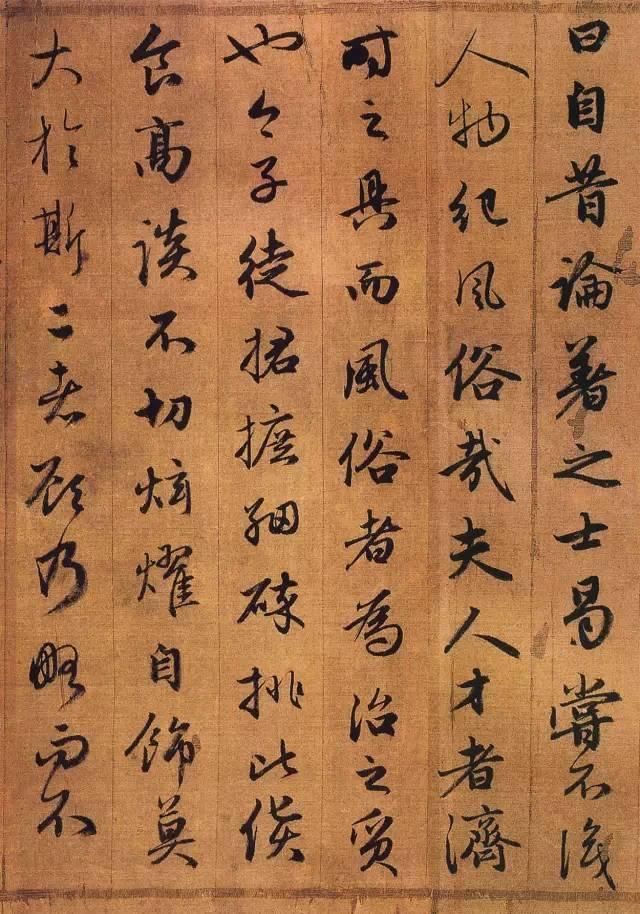 曰自昔論著之士曷嘗不識
人物紀風俗哉夫人才者濟
時之具而風俗者為治之質
也今子徒捃摭細碎排比
食高談不切炫燿自飾莫
大於斯二者顧乃略而不